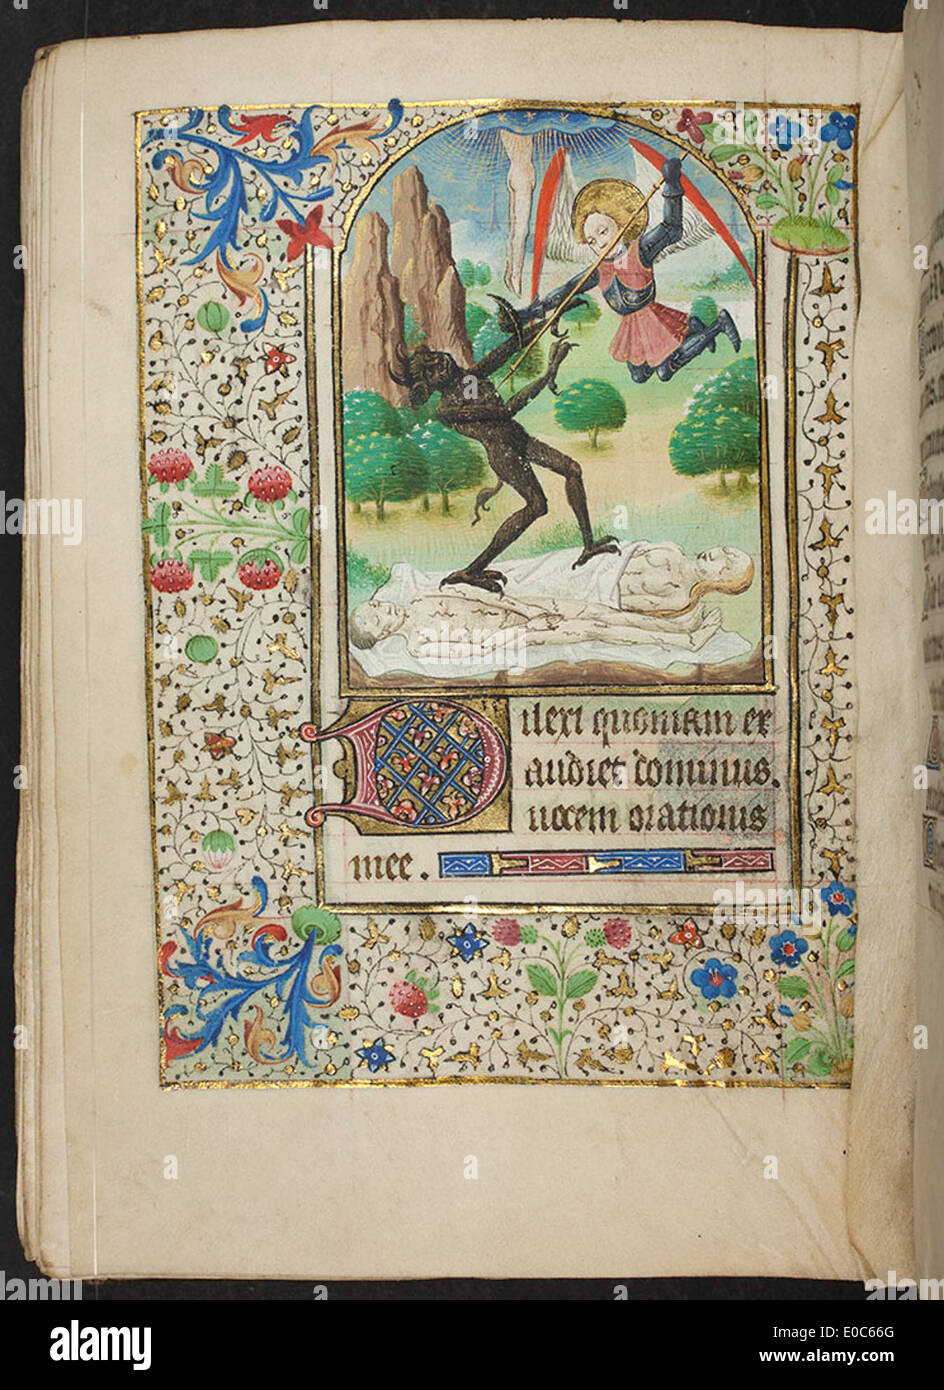 Dilexi quoniam ex
audiet dominus.
uocem orationis
mee.
alamy
Image ID: E0C66G
www.alamy.com